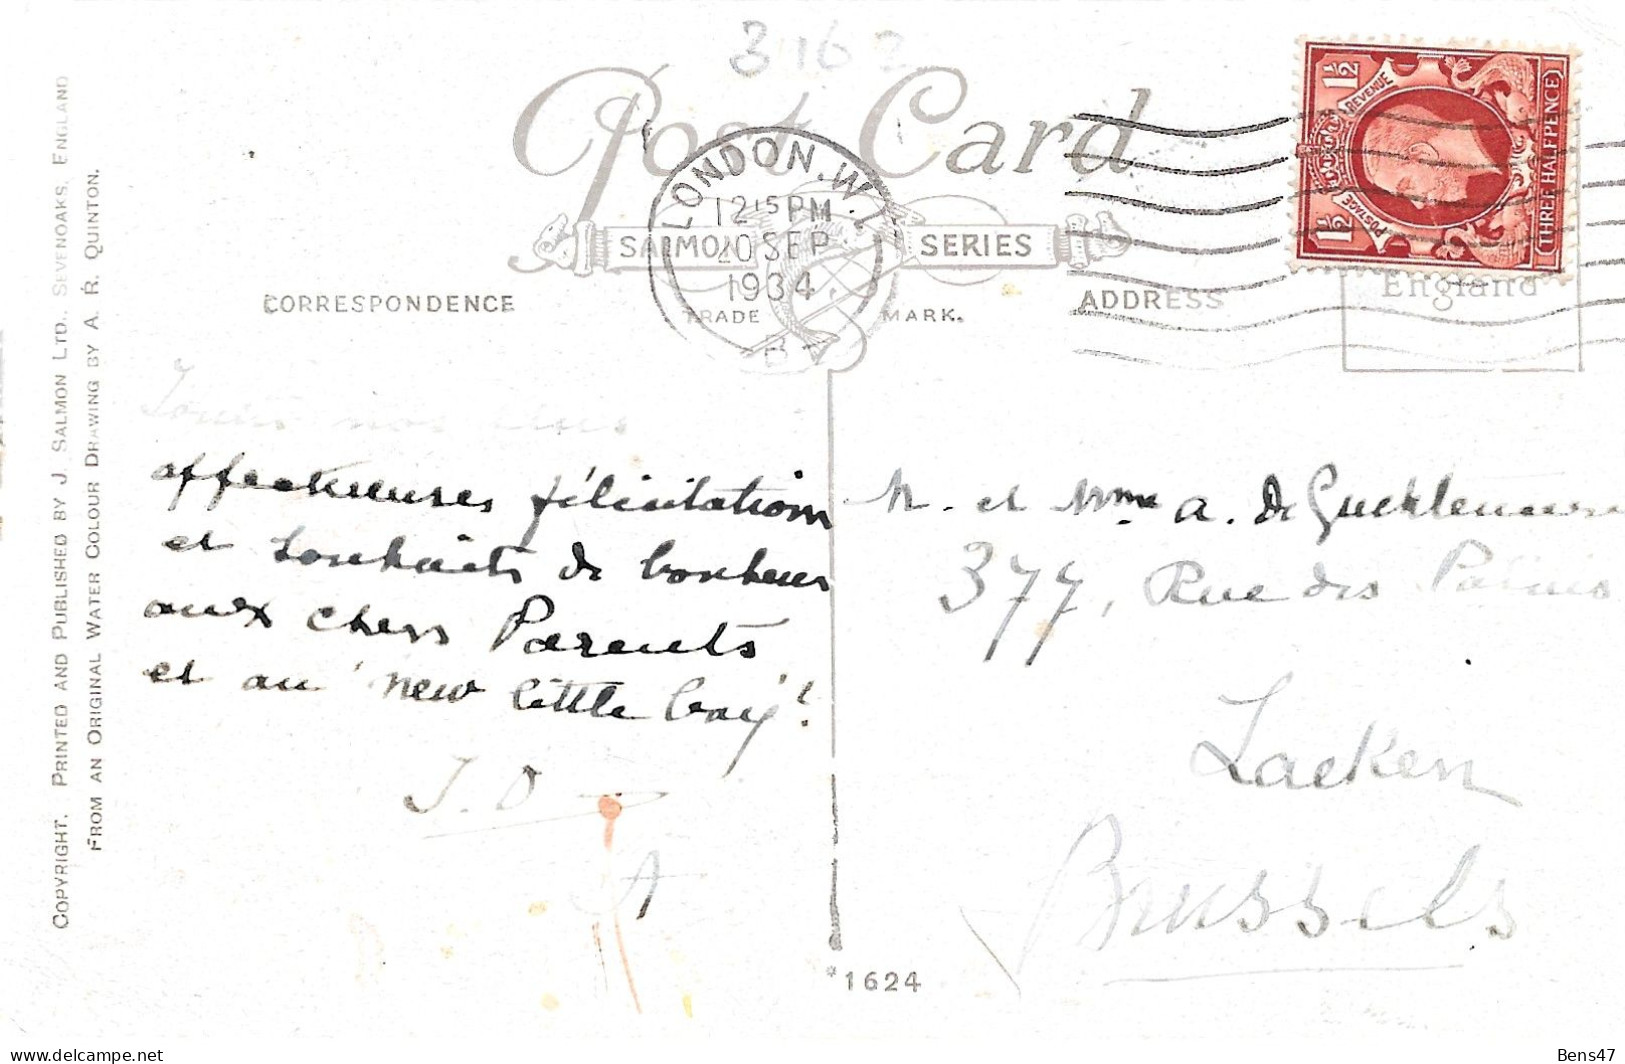 3162
Post Card
LONDON. W.1.
12 15 PM
20 SEP
1934
1½ POSTAGE REVENUE 1½
THREE HALFPENCE
SALMON SERIES
CORRESPONDENCE
TRADE MARK.
ADDRESS
England
COPYRIGHT. PRINTED AND PUBLISHED BY J. SALMON LTD., SEVENOAKS, ENGLAND
FROM AN ORIGINAL WATER COLOUR DRAWING BY A. R. QUINTON.
Toutes nos plus
affectueuses félicitations
et souhaits de bonheur
aux chers Parents
et au "new little boy"!
J. D
M. et Mme A. De
377, Rue des Palais
Laeken
Brussels
*1624
Bens47